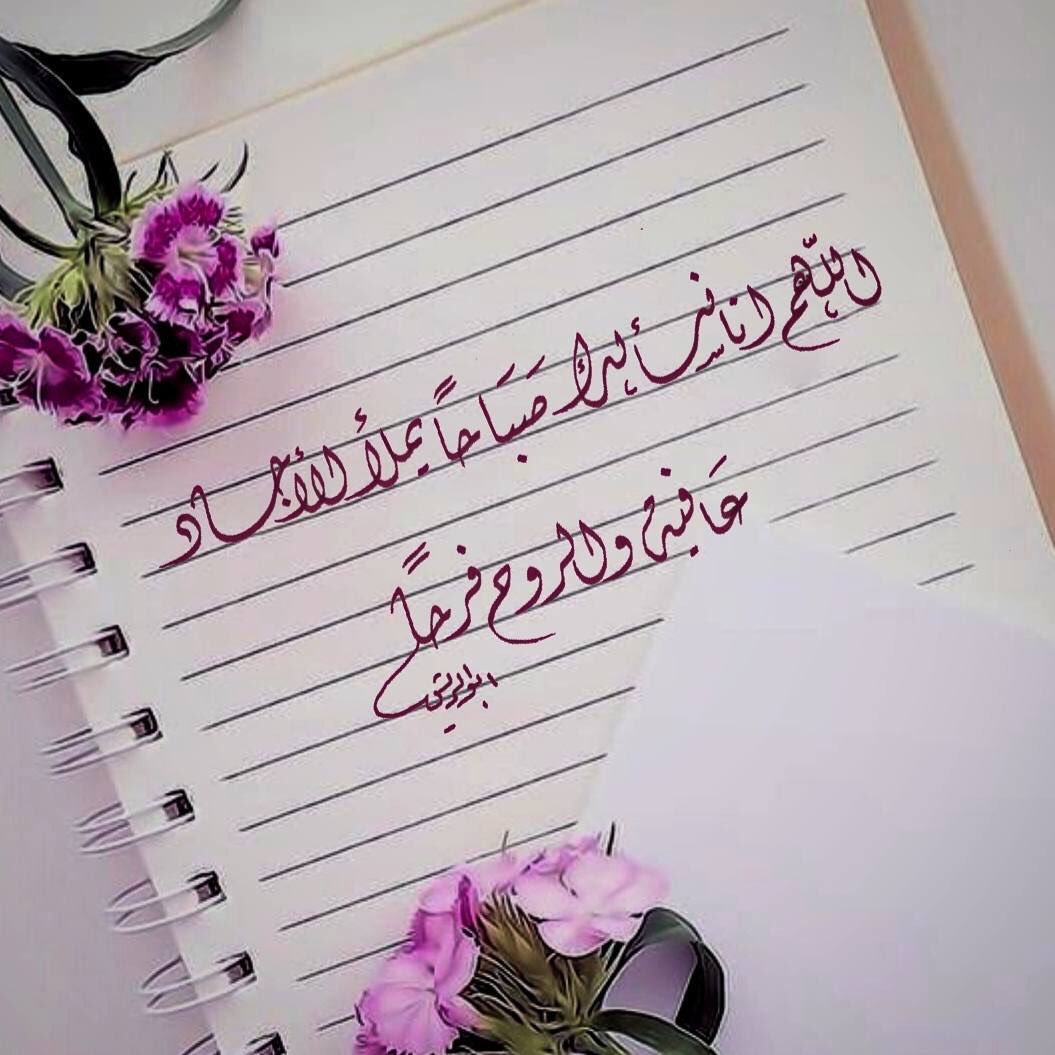 اللّهم انا نسألك صَبَاحاً يملأ الأجساد
عَافية والروح فرحاً